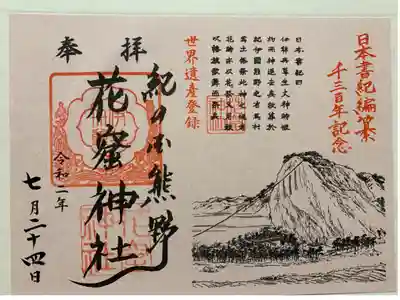 日本書紀編纂
千三百年記念
日本書紀曰
伊弉冉尊生火神時被
灼而神退去矣故葬於
紀伊國熊野之有馬村
焉土俗祭此神之魂者
花時亦以花祭又用鼓
吹幡旗歌舞而祭矣
世界遺産登録
奉拝
紀の国熊野
花窟神社
令和二年
七月二十四日